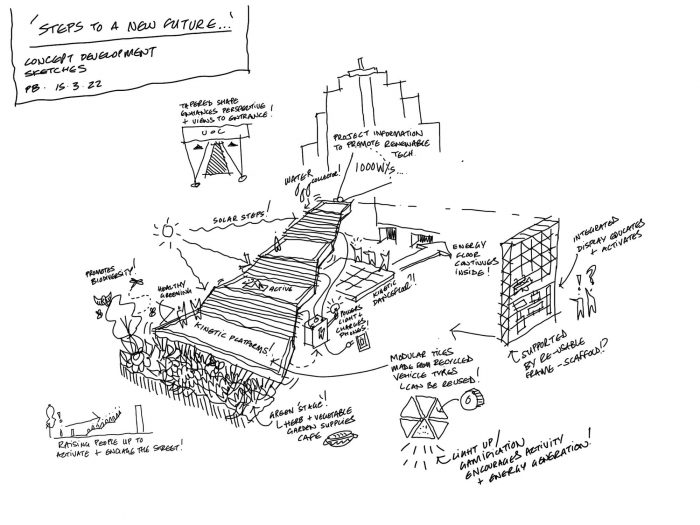 'STEPS TO A NEW FUTURE...'
CONCEPT DEVELOPMENT
SKETCHES
PB. 15.3.22
TAPERED SHAPE
ENHANCES PERSPECTIVE
+ VIEWS TO ENTRANCE!
UOC
PROJECT INFORMATION
TO PROMOTE RENEWABLE
TECH.
1000W/s...
WATER
COLLECTOR!
SOLAR STEPS!
ENERGY
FLOOR
CONTINUES
INSIDE!
INTEGRATED
DISPLAY EDUCATES
+ ACTIVATES
PROMOTES
BIODIVERSITY!
HEALTHY
GREENING
ACTIVE
KINETIC
DANCEFLOOR?!
POWERS
LIGHT &
CHARGES
PHONES!
KINETIC PLATFORMS!
SUPPORTED
BY RE-USABLE
FRAME - SCAFFOLD!?
MODULAR TILES
MADE FROM RECYCLED
VEHICLE TYRES
CAN BE REUSED!
GREEN 'STAGE'!
HERB + VEGETABLE
GARDEN SUPPLIES
CAFE
RAISING PEOPLE UP TO
ACTIVATE + ENGAGE THE STREET!
LIGHT UP/
GAMIFICATION
ENCOURAGES ACTIVITY
+ ENERGY GENERATION!